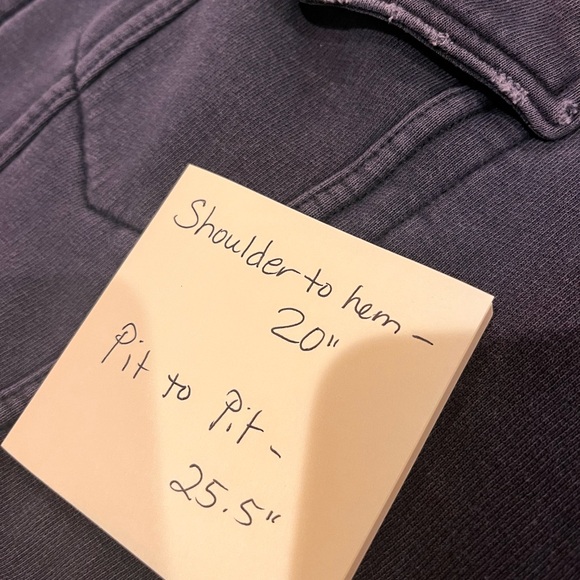 Shoulder to hem -
20"
Pit to Pit -
25.5"